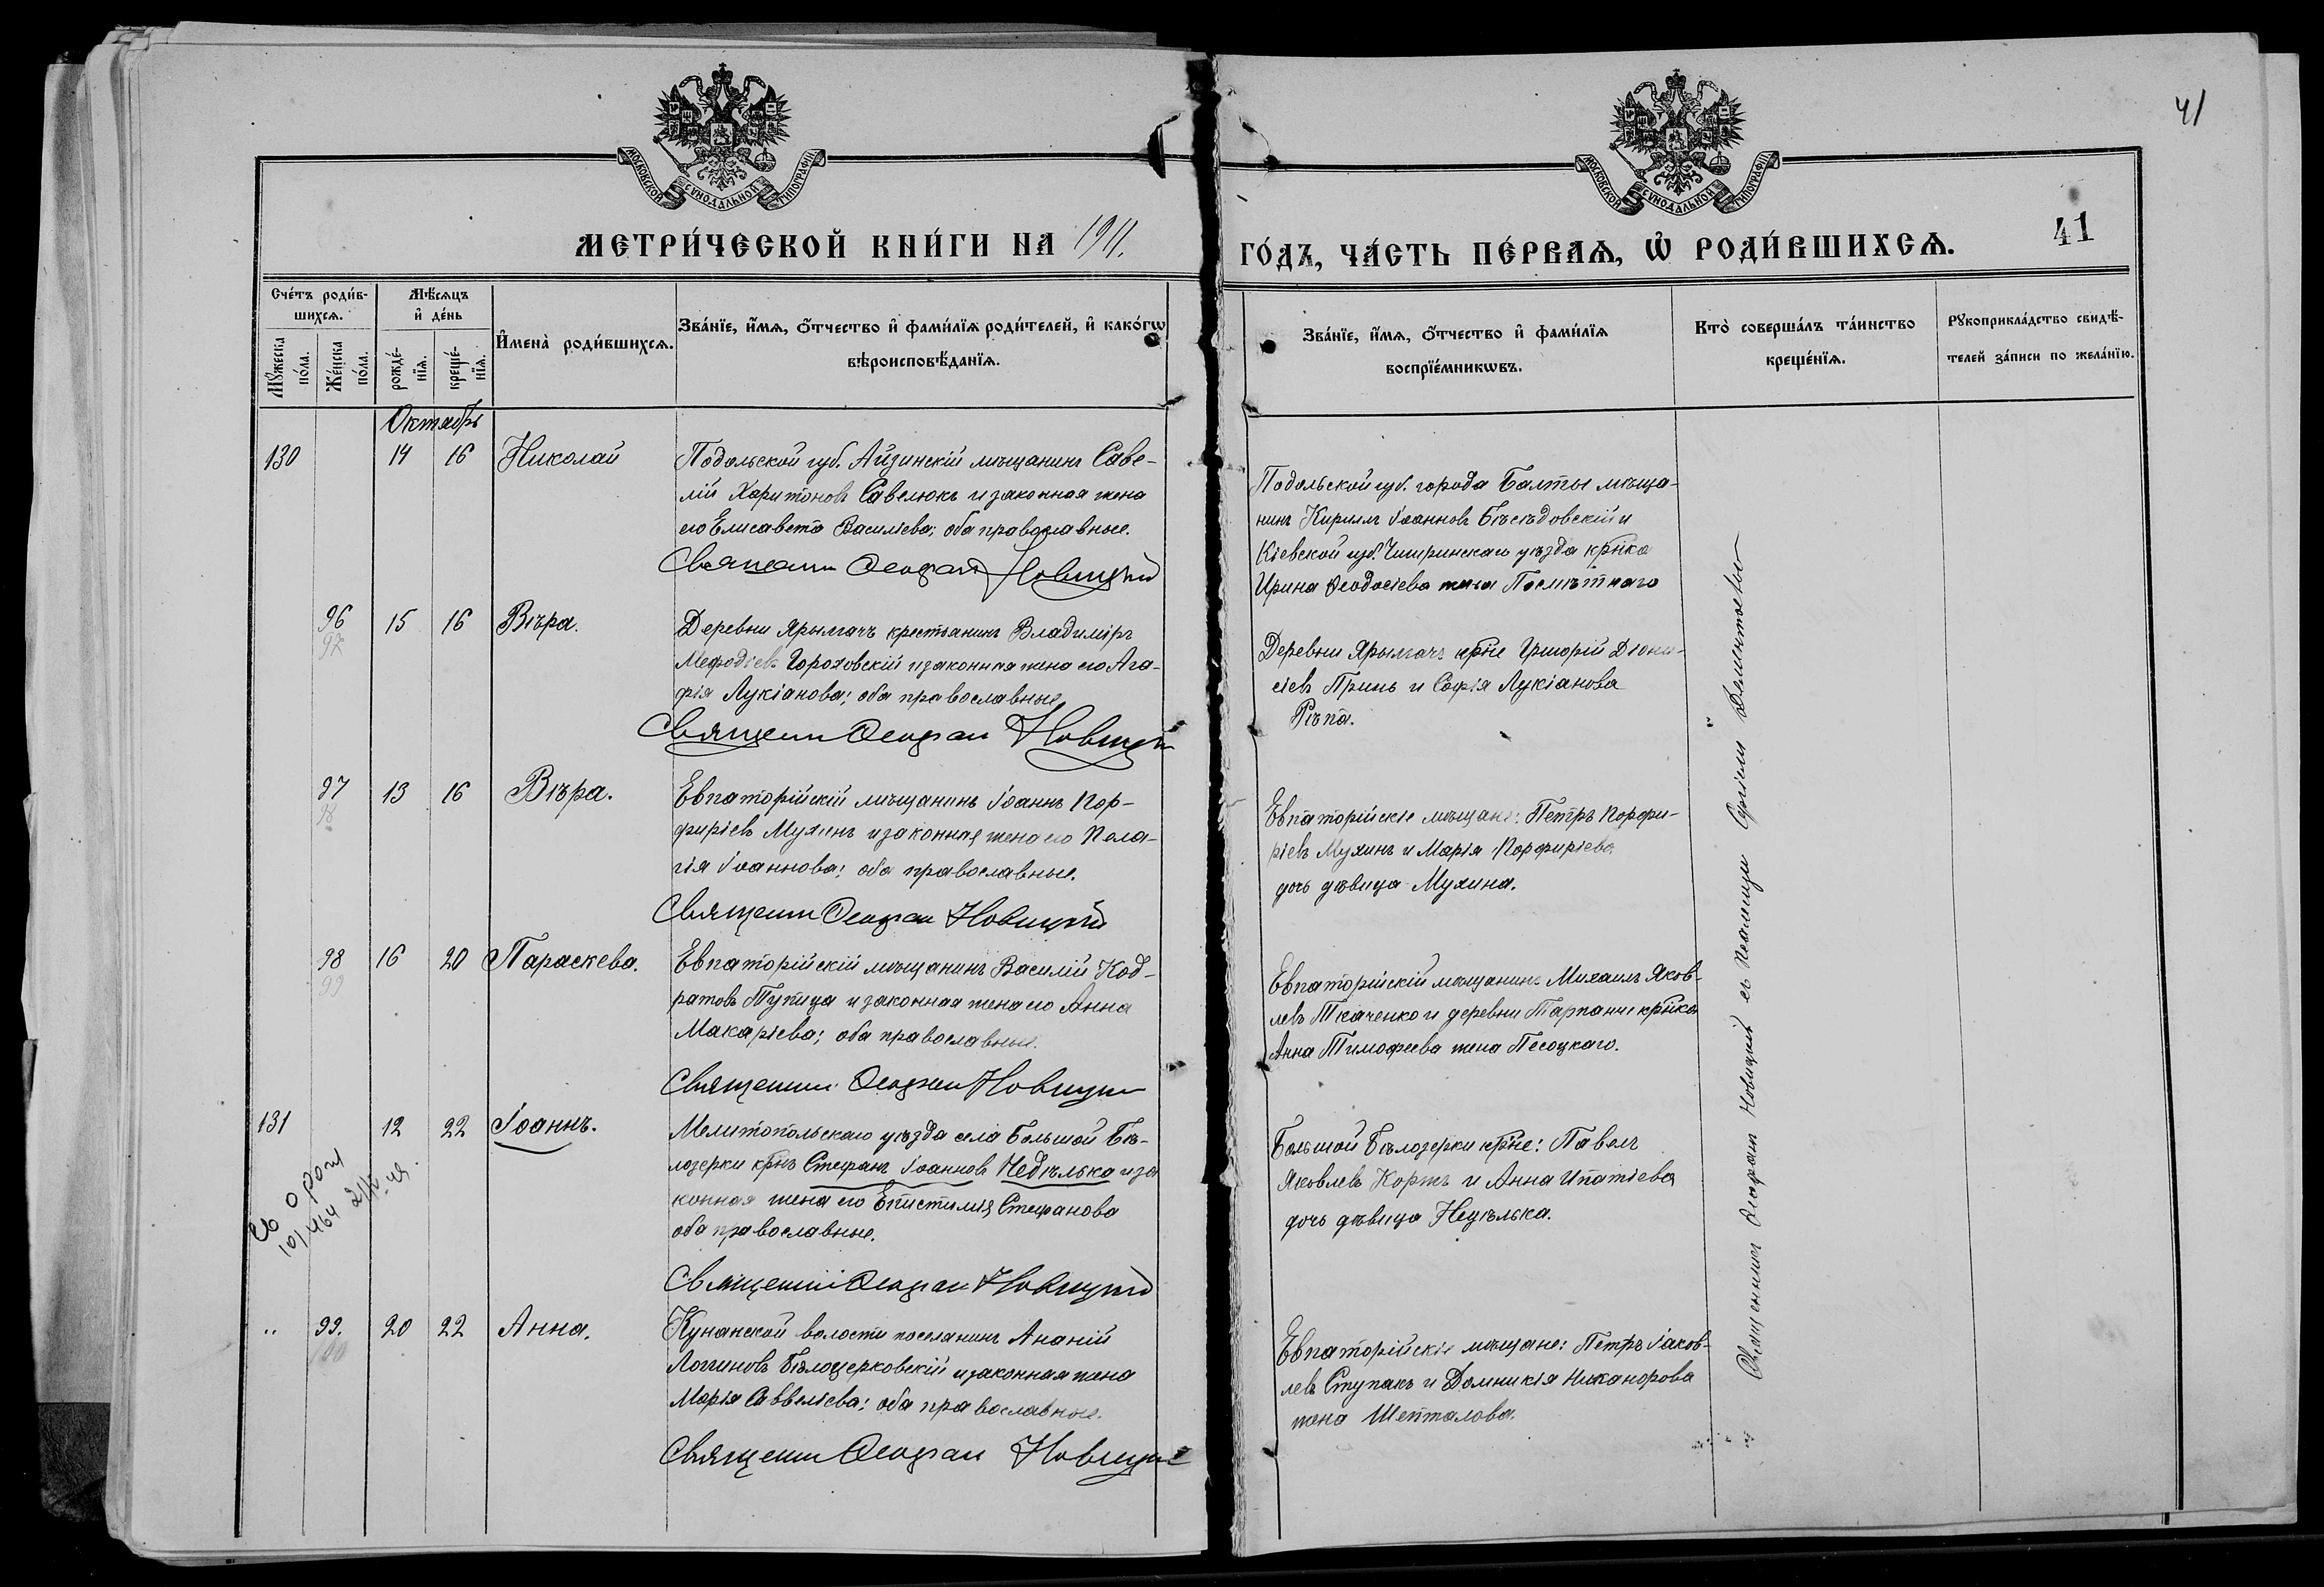 41
МОСКОВСКОЙ СѴНОДАЛЬНОЙ ТИПОГРАФІИ
МОСКОВСКОЙ СѴНОДАЛЬНОЙ ТИПОГРАФІИ
МЕТРИ́ЧЕСКОЙ КНИ́ГИ НА 1911.
ГО́ДЪ, ЧА́СТЬ ПЕ́РВАѦ, Ѡ҆ РОДИ́ВШИХСѦ.
41
Сче́тъ роди́в-
шихсѧ.
Мѹ́жеска по́ла.
Же́нска по́ла.
Мѣ́сѧцъ
и҆ де́нь
рожде́нїѧ.
креще́нїѧ.
И҆мена̀ роди́вшихсѧ.
Зва́нїе, и҆́мѧ, ѻ҆́тчество и҆ фами́лїѧ роди́телей, и҆ како́гѡ
вѣроисповѣ́данїѧ.
Зва́нїе, и҆́мѧ, ѻ҆́тчество и҆ фами́лїѧ
воспрїе́мникѡвъ.
Кто̀ соверша́лъ та́инство
креще́нїѧ.
Рѹкоприкла́дство свидѣ́-
телей за́писи по жела́нїю.
Октябрь
130
14 16
Николай
Подольской губ. Айзинскій мѣщанинъ Саве-
лій Харитоновъ Савелюкъ и законная жена
его Елисавета Василіева; оба православные.
Священникъ Ѳеофанъ Новицкій
Подольской губ. города Балты мѣща-
нинъ Кириллъ Іоанновъ Бѣсѣдовскій и
Кіевской губ. Чигиринскаго уѣзда крн҃ка
Ирина Ѳеодосіева жена Посмѣтнаго
96
97
15 16
Вѣра.
Деревни Ярылгачъ крестьянинъ Владиміръ
Меѳодіевъ Гороховскій и законная жена его Ага-
фія Лукіанова; оба православные
Священникъ Ѳеофанъ Новицкій
Деревни Ярылгачъ крн҃е Григорій Діони-
сіевъ Гринь и Софія Лукіанова
Рѣпа.
97
98
13 16
Вѣра.
Евпаторійскій мѣщанинъ Іоаннъ Пор-
фиріевъ Мухинъ и законная жена его Пела-
гія Іоаннова; оба православные.
Священникъ Ѳеофанъ Новицкій
Евпаторійскіе мѣщане: Петръ Порфи-
ріевъ Мухинъ и Марія Порфиріева
дочь дѣвица Мухина.
98
99
16 20
Параскева.
Евпаторійскій мѣщанинъ Василій Код-
ратовъ Тупица и законная жена его Анна
Макаріева; оба православные.
Священникъ Ѳеофанъ Новицкій
Евпаторійскій мѣщанинъ Михаилъ Яков-
левъ Ткаченко и деревни Тарпанчи крн҃ка
Анна Тимофеева жена Песоцкаго.
131
12 22
Іоаннъ.
Мелитопольскаго уѣзда села Большой Бѣ-
лозерки крн҃ъ Стефанъ Іоанновъ Недѣлька и за
конная жена его Епистимія Стефанова
оба православные.
Священникъ Ѳеофанъ Новицкій
Большой Бѣлозерки крн҃е: Павелъ
Яковлевъ Коржъ и Анна Ипатіева
дочь дѣвица Недѣлька.
" 99.
100
20 22
Анна.
Кунанской волости поселянинъ Ананій
Логгиновъ Бѣлоцерковскій и законная жена
Марія Саввеліева; оба православные.
Священникъ Ѳеофанъ Новицкій
Евпаторійскіе мѣщане: Петръ Іаков-
левъ Ступакъ и Домникія Никанорова
жена Шепталова.
Священникъ Ѳеофанъ Новицкій съ Псаломщи Сергіемъ Дементьевы